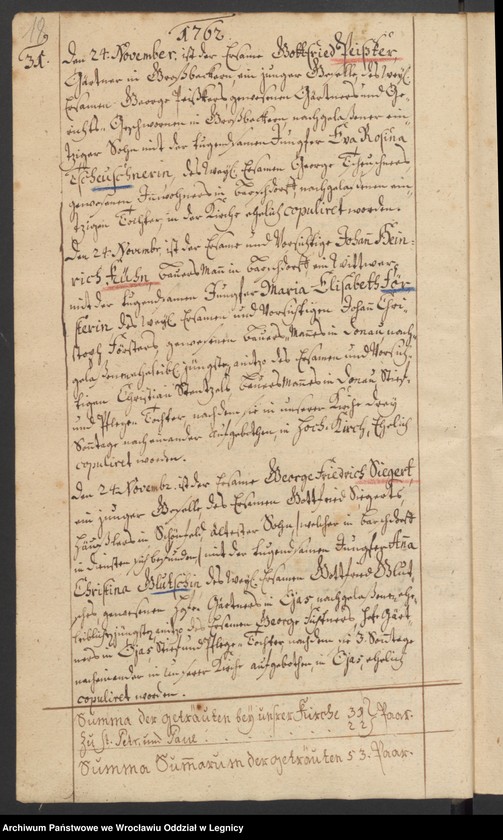 18
1762.
31. Den 24. November, ist der Ersame Gottfried Peißker,
Gärtner in Großbeckern, ein junger Geselle, des weyl.
Ersamen George Peißkers, gewesenen Gärtners und Ge-
richts-Geschwornen in Großbeckern nachgelaßener ein-
tziger Sohn mit der tugendsamen Jungfer Eva Rosina
Tscheuschnerin, des weyl. Ersamen George Tscheuschners
gewesenen Inwohners in Barschdorff nachgelaßenen ein-
tzigen Tochter, in der Kirche ehelich copuliret worden.
Den 24. Novembr. ist der Ersame und Vorsichtige Johann Hein-
rich Kühn, Bauers Mann in Barschdorff ein Wittwer
mit der tugendsamen Jungfer Maria Elisabeth För-
sterin des weyl. Ersamen und Vorsichtigen Johann Chri-
stoph Försters gewesenen Bauers-Mannes in Donau nach-
gela. jüngste, anitzo des Ersamen und Vorsich-
tigen Christian Bauers Mannes in Donau Stief-
und Pflege-Tochter, nachdem sie in unserer Kirche drey
Sonntage nacheinander aufgebothen, in Hoch-Kirch, Ehelich
copuliret worden.
Den 24. Novembr. ist der Ersame George Friedrich Siegert
ein junger Geselle des Ersamen Gottfried Siegerts,
Häuslers in Schönfeld ältester Sohn, welcher in Barschdorff
in Diensten sich befunden, mit der tugendsamen Jungfer Anna
Christina Glutschin des weyl. Ersamen Gottfried Glut-
sches gewesenen Gärtners in Ejas nachgelaßene ehe-
leibliche jüngste, anitzo des Ersamen George Gärt-
ners in Ejas, Stief und Pflege-Tochter nachdem sie 3. Sonntage
nacheinander in unserer Kirche aufgebothen in Ejas, ehelich
copuliret worden.
Summa der getrauten bey unsrer Kirche 31 } Paar.
Zu St. Petr. und Paul . . . 22 }
Summa Summarum der getrauten 53. Paar.
Archiwum Państwowe we Wrocławiu Oddział w Legnicy